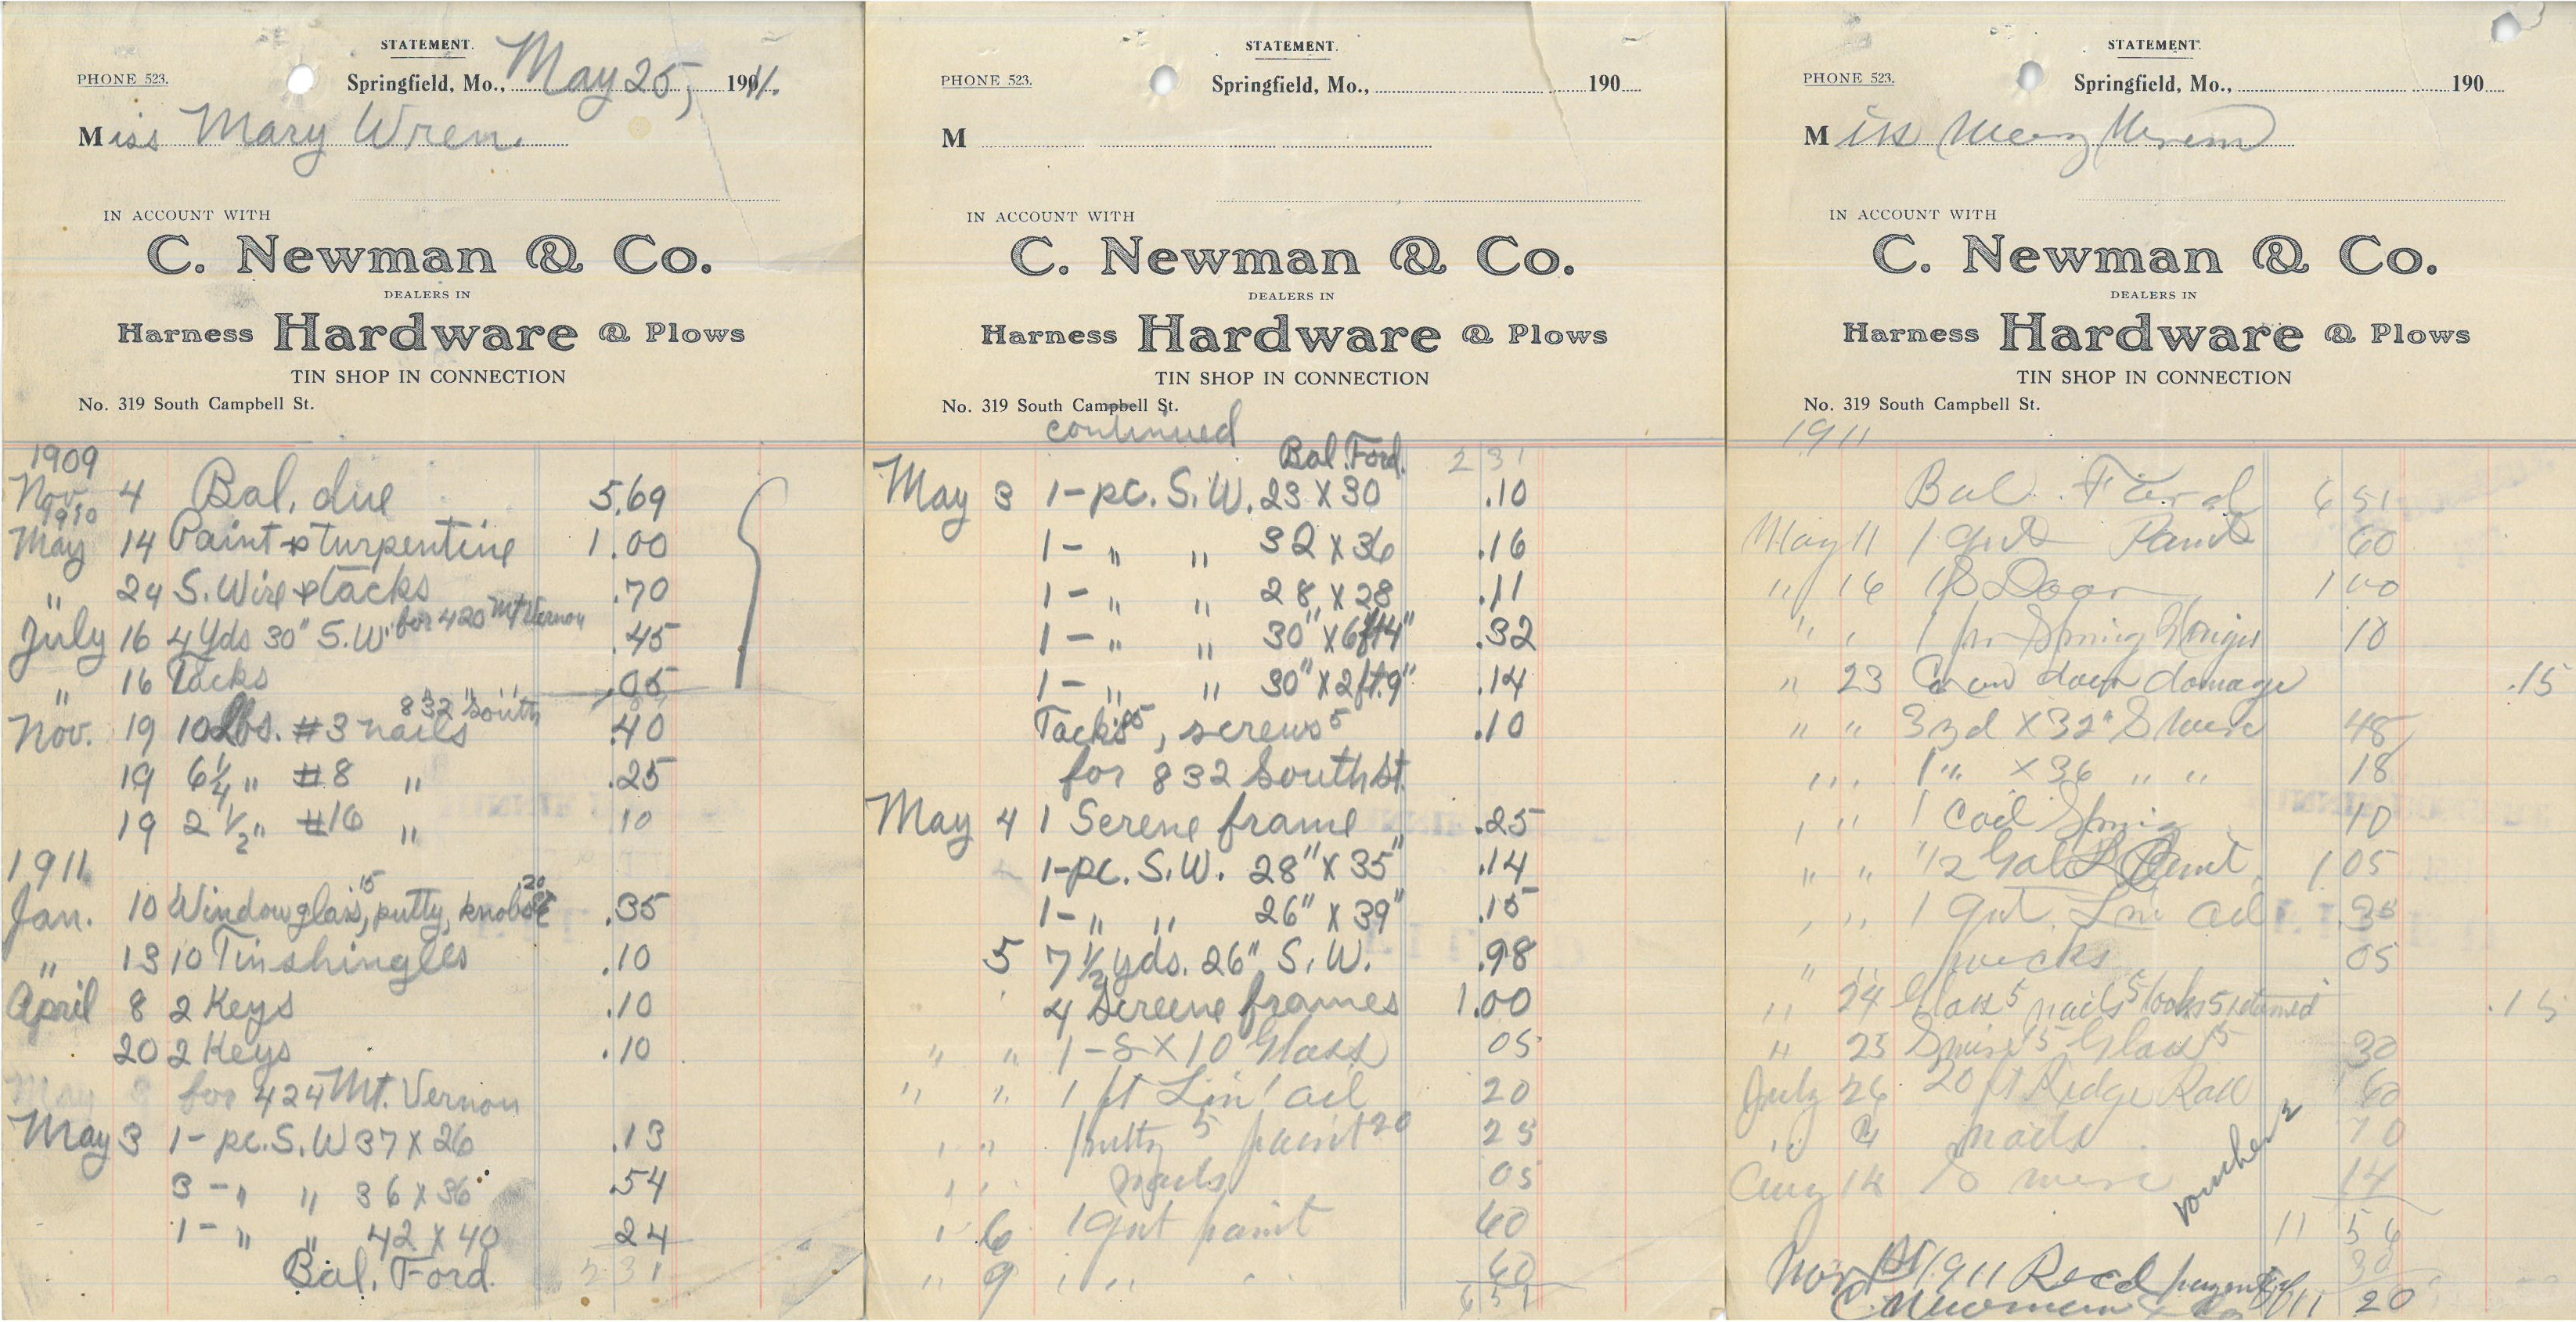 STATEMENT.
PHONE 523.
Springfield, Mo., May 25, 1911.
Miss Mary Wren.
IN ACCOUNT WITH
C. Newman & Co.
DEALERS IN
Harness Hardware & Plows
TIN SHOP IN CONNECTION
No. 319 South Campbell St.
1909
Nov. 4 Bal. due 5.69
1910
May 14 Paint & turpentine 1.00
" 24 S. Wire & tacks .70
for 420 Mt Vernon
July 16 4 Yds 30" S.W. .45
" 16 Tacks .05
832 South
Nov. 19 10 Lbs. #3 nails .40
19 6 1/4 " #8 " .25
19 2 1/2 " #16 " 10
1911
Jan. 10 Window glass, 15 putty, knobs 20 .35
" 13 10 Tin shingles .10
April 8 2 Keys .10
20 2 Keys .10
for 424 Mt. Vernon
May 3 1- pc. S.W 37 X 26 .13
3 - " " 36 X 36 .54
1 - " " 42 X 40 24
Bal. Ford. 2 31
STATEMENT.
PHONE 523.
Springfield, Mo., 190
M
IN ACCOUNT WITH
C. Newman & Co.
DEALERS IN
Harness Hardware & Plows
TIN SHOP IN CONNECTION
No. 319 South Campbell St.
continued
Bal. Ford. 2 31
May 3 1- pc. S.W. 23 X 30 .10
1 - " " 32 X 36 .16
1 - " " 28 X 28 .11
1 - " " 30" X 6ft4" .32
1 - " " 30" X 2ft.9" .14
Tacks 5, screws 5 .10
for 832 South st.
May 4 1 Screne frame .25
1-pc. S.W. 28" X 35" .14
1- " " 26" X 39" .15
5 7 1/2 yds. 26" S.W. .98
4 Screene frames 1.00
" " 1- 8 X 10 Glass 05
" " 1 pt Lin oil 20
" " putty 5 paint 20 25
" " nails 05
" 6 1 qut paint 60
" 9 " " " 60
6 51
STATEMENT.
PHONE 523.
Springfield, Mo., 190
Miss Mary Wrenn
IN ACCOUNT WITH
C. Newman & Co.
DEALERS IN
Harness Hardware & Plows
TIN SHOP IN CONNECTION
No. 319 South Campbell St.
1911
Bal. Ford 6 51
May 11 1 qut Paint 60
" 16 1 S Door 1 00
" " 1 pr Spring Hinges 10
" 23 door damage .15
" " 3 yd X 32" S wire 48
" " 1 " X 36 " " 18
" " 1 Coil Spring 10
" " 1/2 Gal Paint 1 05
" " 1 qut Lin oil 35
" " 05
" 24 Glass 5 nails 5 hooks 5 returned .15
" 25 Glass 15 30
July 26 20 ft Ridge Roll 60
" " nails 10
Aug 14 S wire 14
voucher 2
11 56
Nov 1911 Recd payment 30
C. Newman & Co 11 20